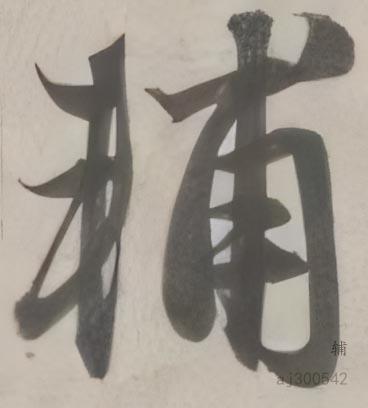 辅
辅
aj300542